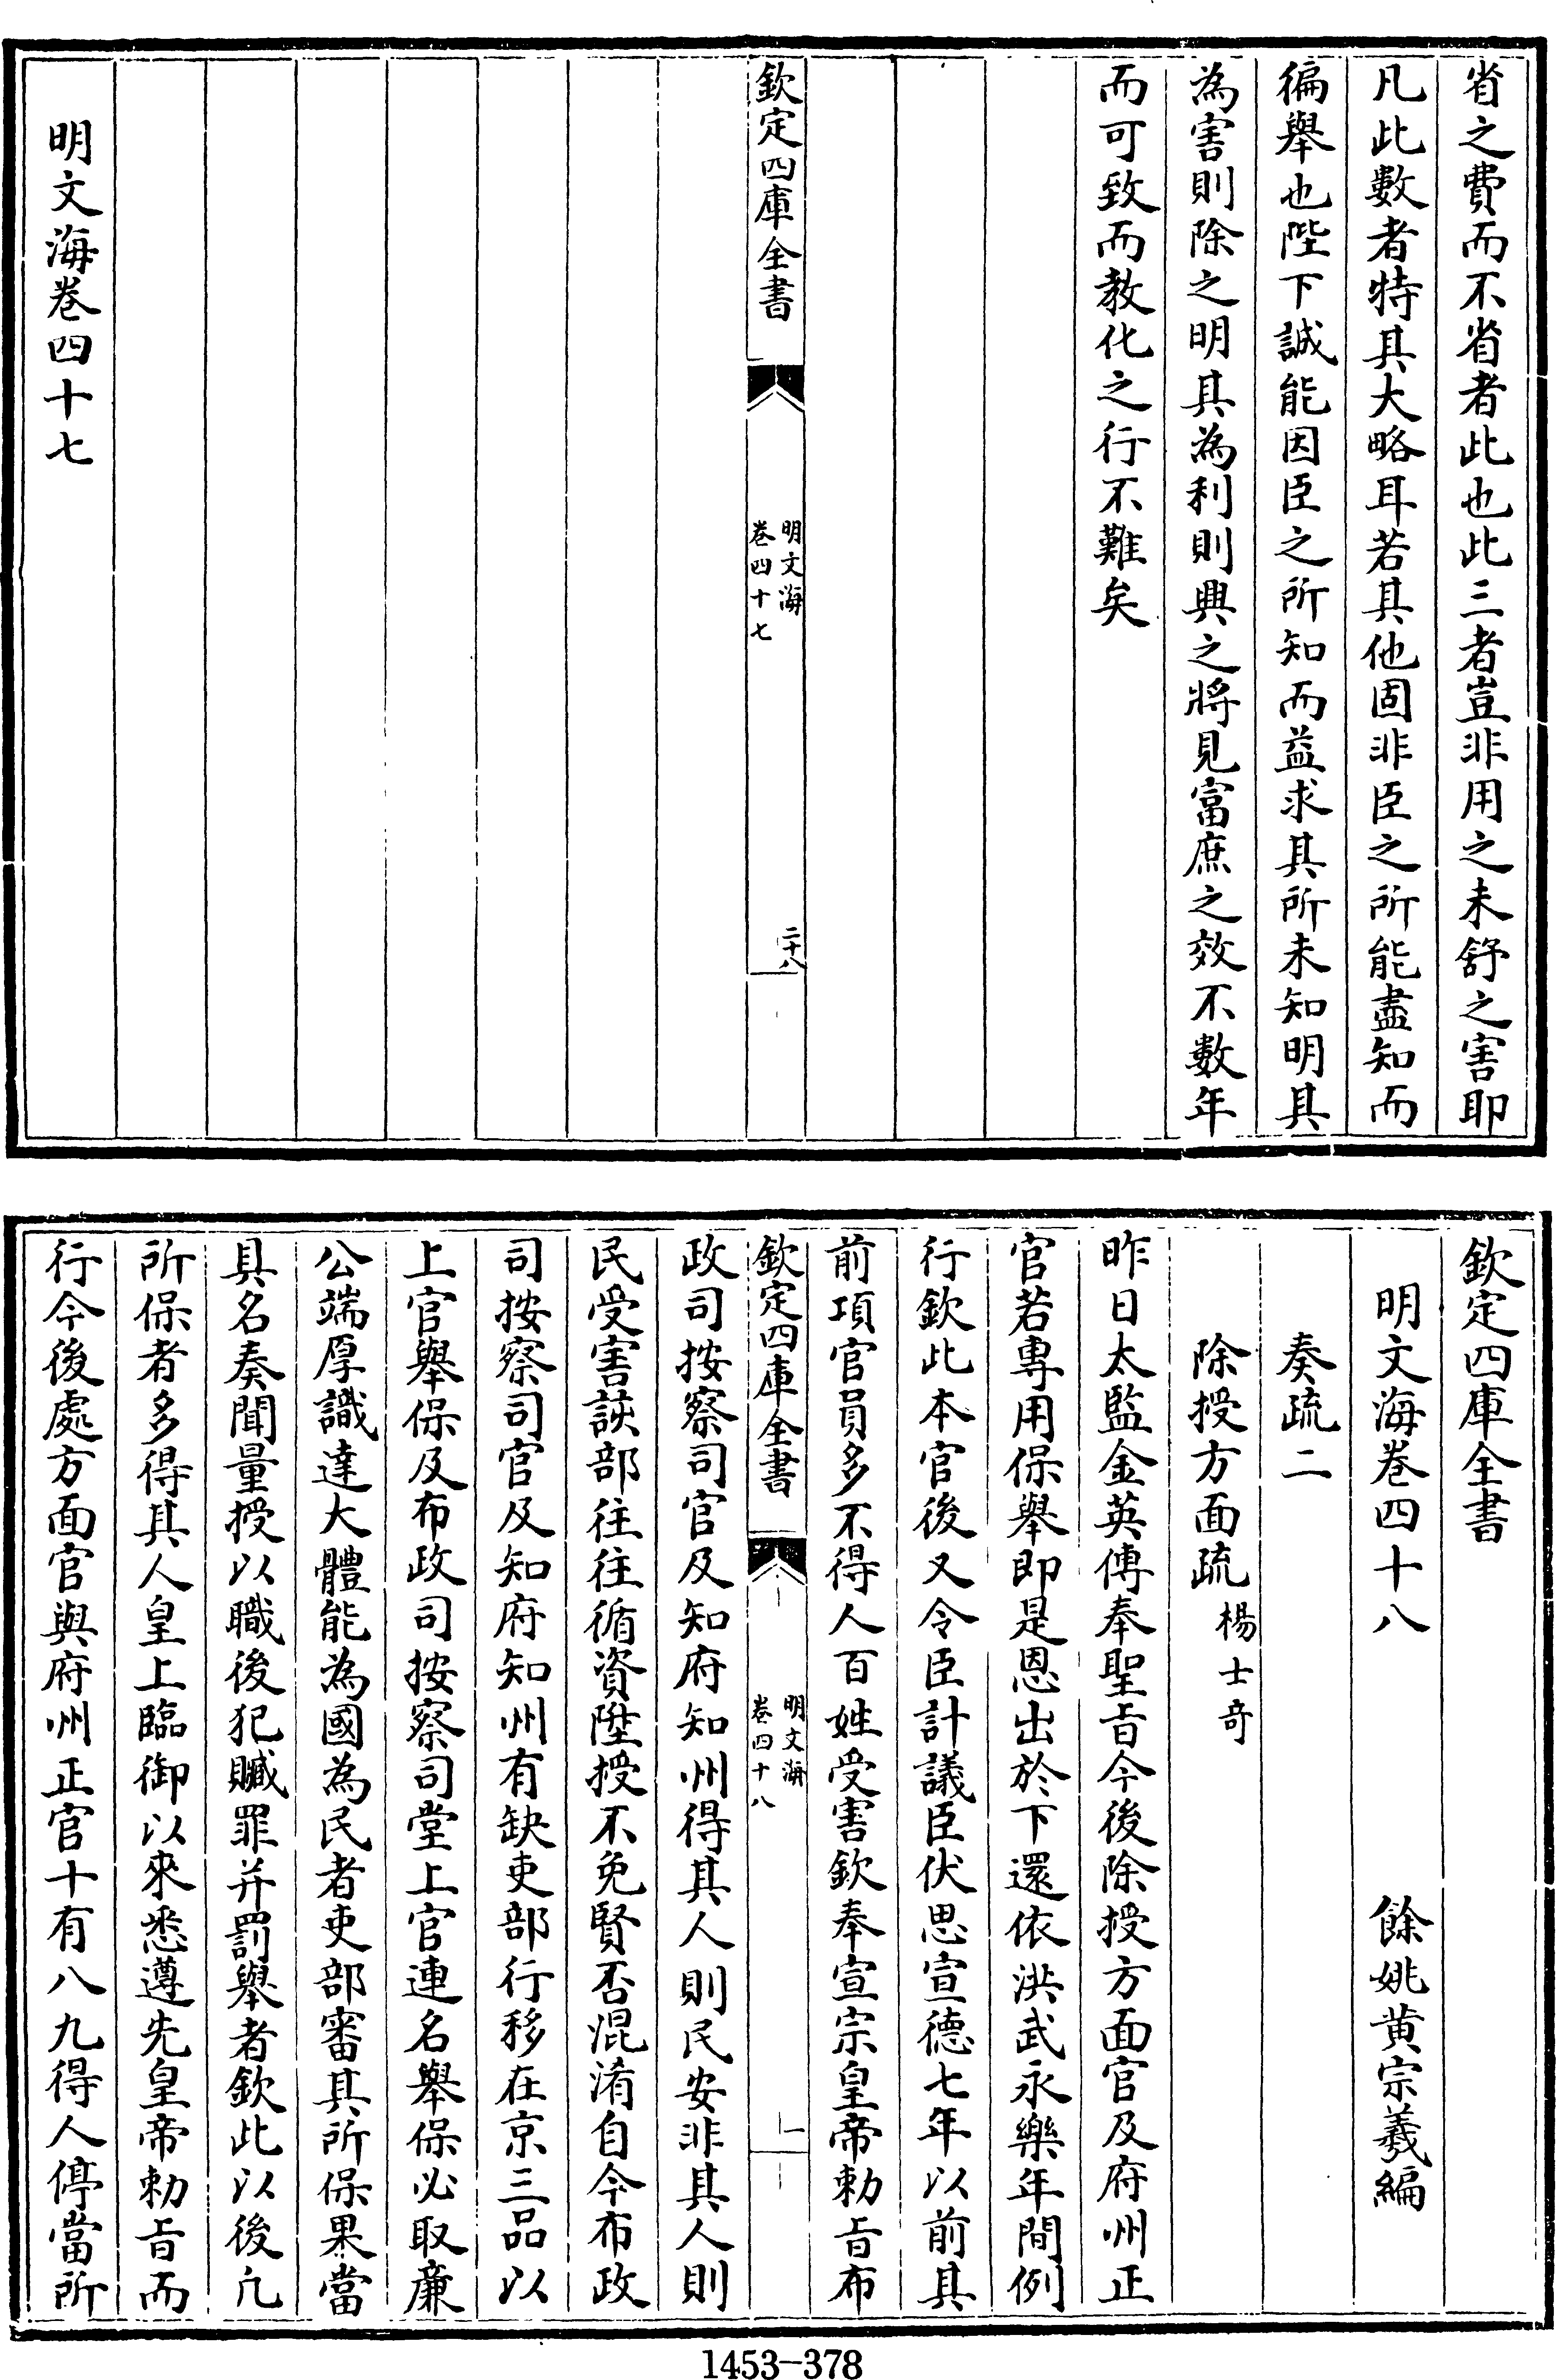 省之費而不省者此也此三者豈非用之未舒之害耶
凡此數者特其大略耳若其他固非臣之所能盡知而
徧舉也陛下誠能因臣之所知而益求其所未知明其
為害則除之明其為利則興之將見富庶之效不數年
而可致而教化之行不難矣
欽定四庫全書
明文海
卷四十七
二十八
明文海卷四十七
欽定四庫全書
明文海卷四十八
餘姚黄宗羲編
奏疏二
除授方面疏楊士奇
昨日太監金英傳奉聖旨今後除授方面官及府州正
官若專用保舉即是恩出於下還依洪武永樂年間例
行欽此本官後又令臣計議臣伏思宣德七年以前其
前項官員多不得人百姓受害欽奉宣宗皇帝勅旨布
欽定四庫全書
明文海
卷四十八
一
政司按察司官及知府知州得其人則民安非其人則
民受害該部往往循資陞授不免賢否混淆自今布政
司按察司官及知府知州有缺吏部行移在京三品以
上官舉保及布政司按察司堂上官連名舉保必取廉
公端厚識達大體能為國為民者吏部審其所保果當
具名奏聞量授以職後犯贓罪并罰舉者欽此以後凡
所保者多得其人皇上臨御以來悉遵先皇帝勅旨而
行今後處方面官與府州正官十有八九得人停當所
1453-378